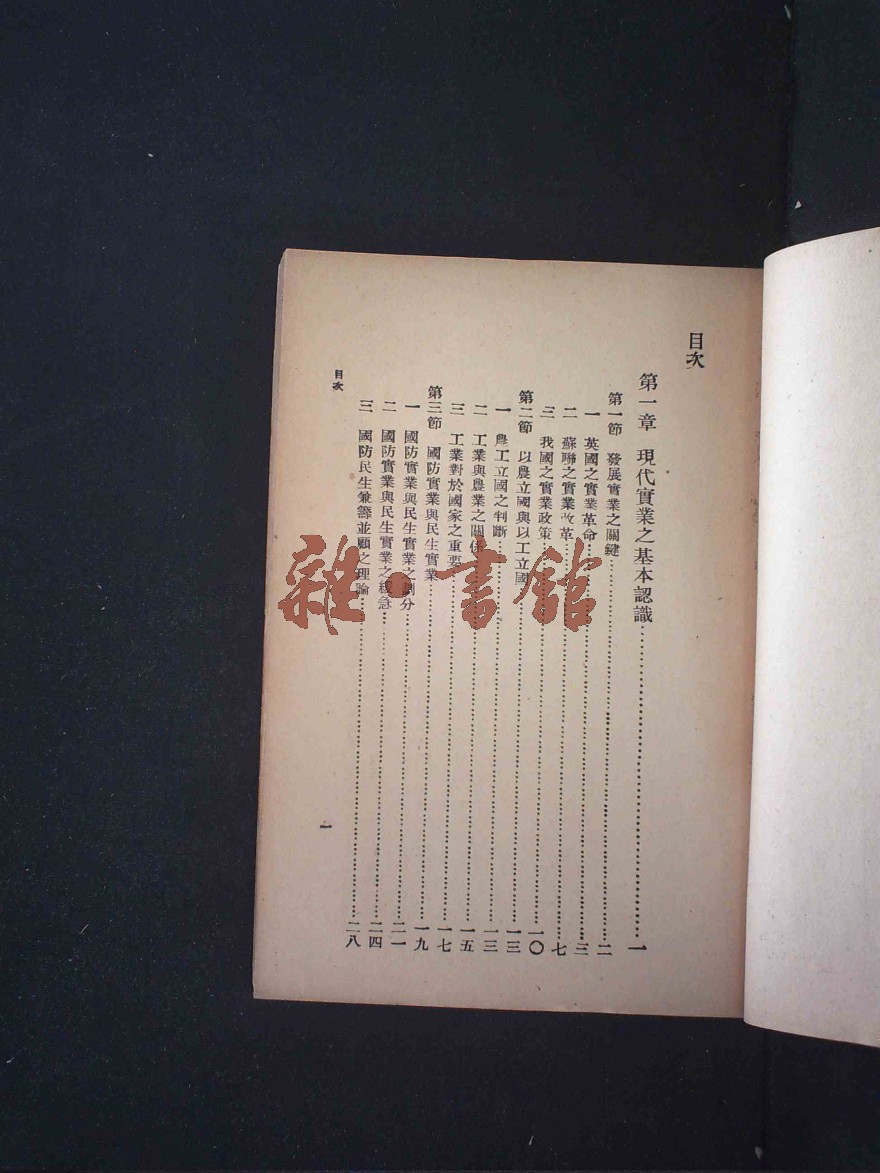 目次
第一章 現代實業之基本認識……一
第一節 發展實業之關鍵……二
一 英國之實業革命……三
二 蘇聯之實業改革……七
三 我國之實業政策……一〇
第二節 以農立國與以工立國……一三
一 農工立國之判斷……一三
二 工業與農業之關係……一五
三 工業對於國家之重要……一七
第三節 國防實業與民生實業……一九
一 國防實業與民生實業之劃分……二一
二 國防實業與民生實業之緩急……二四
三 國防民生兼籌並顧之理論……二八
目次
一
雜·書館